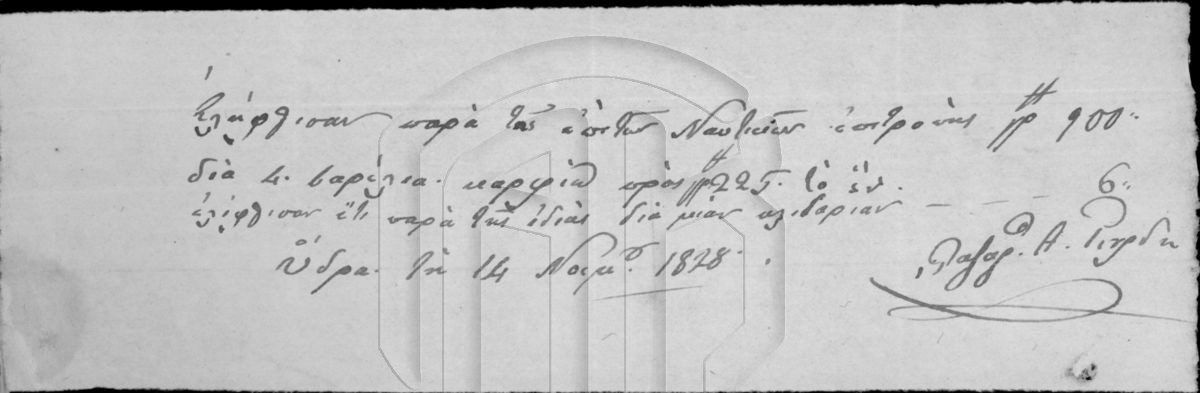 ἐλήφθισαν παρὰ τῆς ἐπὶ τῶν Ναυτικῶν ἐπιτροπῆς 900
διὰ 4. βαρέλια. καρφιὰ πρὸς 225. τὸ ἕν.
ἐλίφθισαν ἔτι παρὰ τῆς ἰδίας διὰ μίαν κλιδαριαν - - - 6
Ὕδρα. τῇ 14 Νοεμ. 1828.
Λαζαρ. Α.